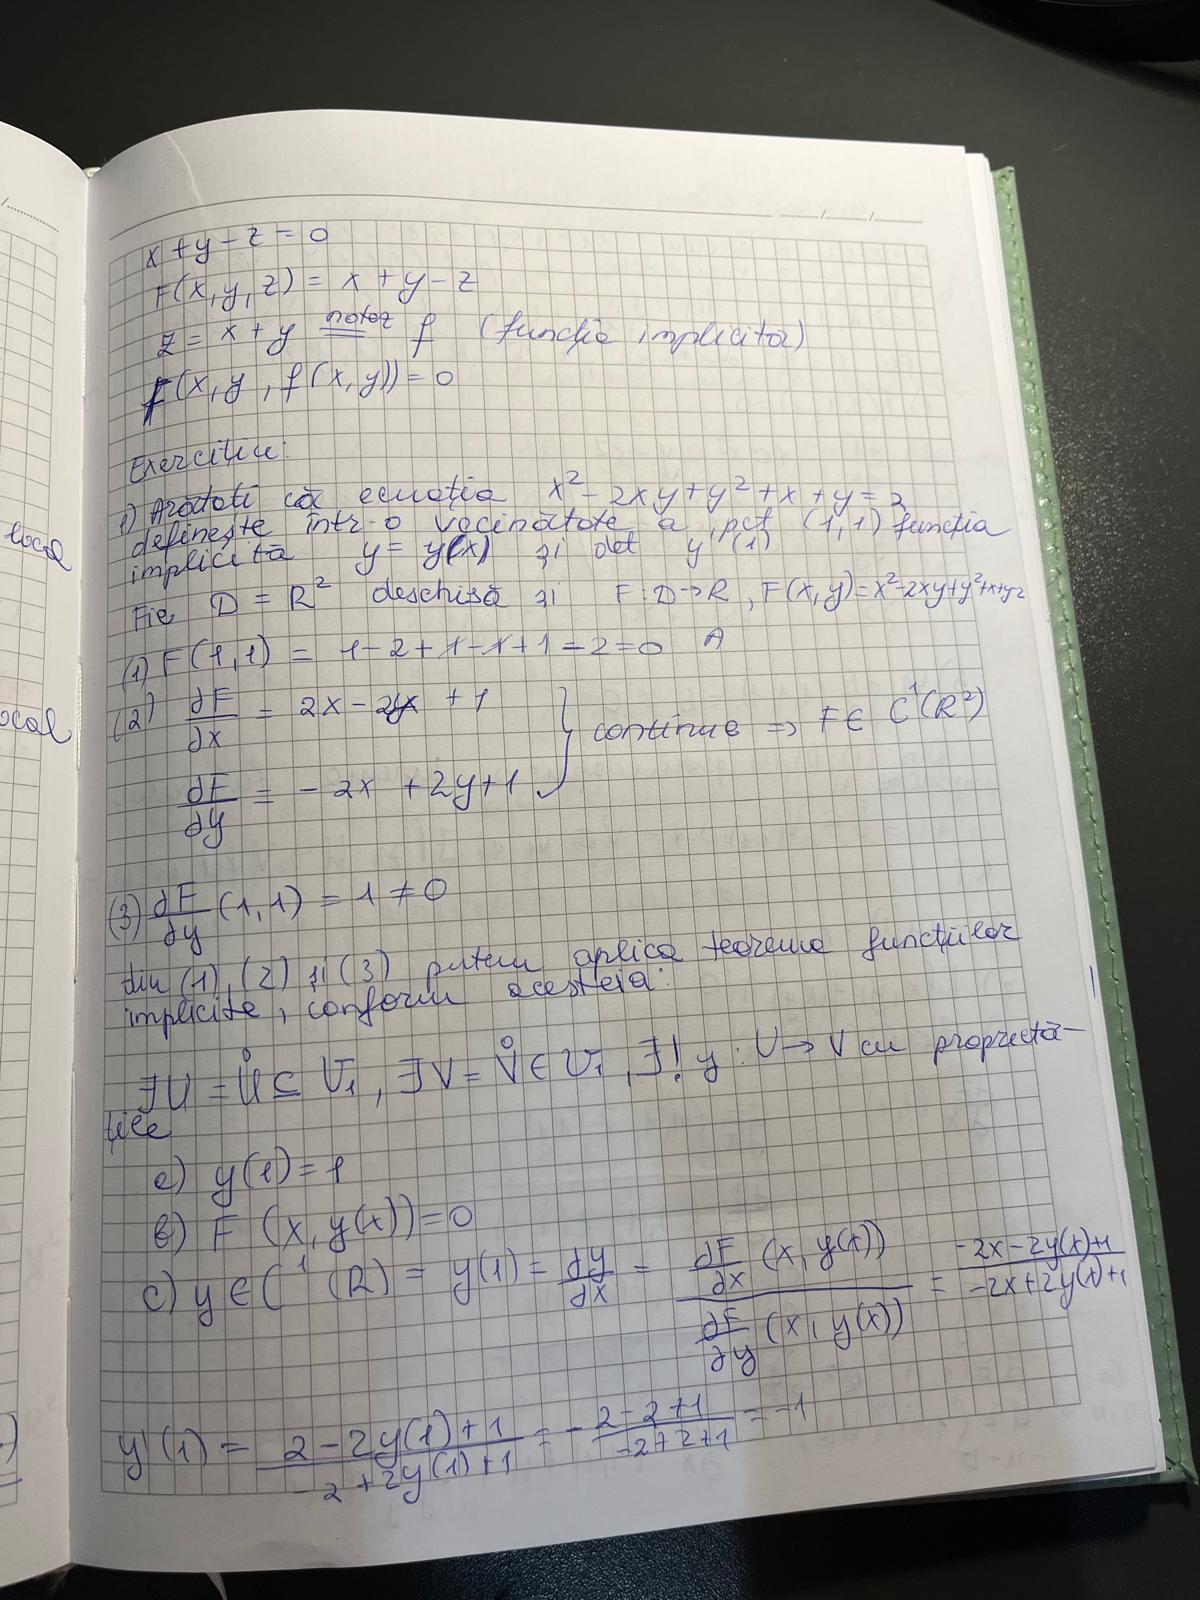 x + y - z = 0
F(x, y, z) = x + y - z
z = x + y notez f (funcția implicită)
F(x, y, f(x, y)) = 0
Exercițiu:
1) Arătați că ecuația x² - 2xy + y² + x + y = 2
definește într-o vecinătate a pct (1,1) funcția
implicită y = y(x) și det y'(1)
Fie D = R² deschisă și F: D → R, F(x,y) = x² - 2xy + y² + x + y - 2
(1) F(1,1) = 1 - 2 + 1 - 1 + 1 - 2 = 0 A
(2) ∂F/∂x = 2x - 2y + 1
continue ⇒ F ∈ C¹(R²)
∂F/∂y = - 2x + 2y + 1
(3) ∂F/∂y (1,1) = 1 ≠ 0
din (1), (2) și (3) putem aplica teorema funcțiilor
implicite, conform acesteia:
∃U = Ů ⊆ V₁, ∃V = V̊ ∈ V₁, ∃! y: U → V cu proprietă-
țile
a) y(1) = 1
b) F (x, y(x)) = 0
c) y ∈ C¹ (R) = y(1) = ∂y/∂x = ∂F/∂x (x, y(x)) / ∂F/∂y (x, y(x)) = -2x - 2y(x) + 1 / -2x + 2y(x) + 1
y'(1) = 2 - 2y(1) + 1 / -2 + 2y(1) + 1 = - 2 - 2 + 1 / -2 + 2 + 1 = -1